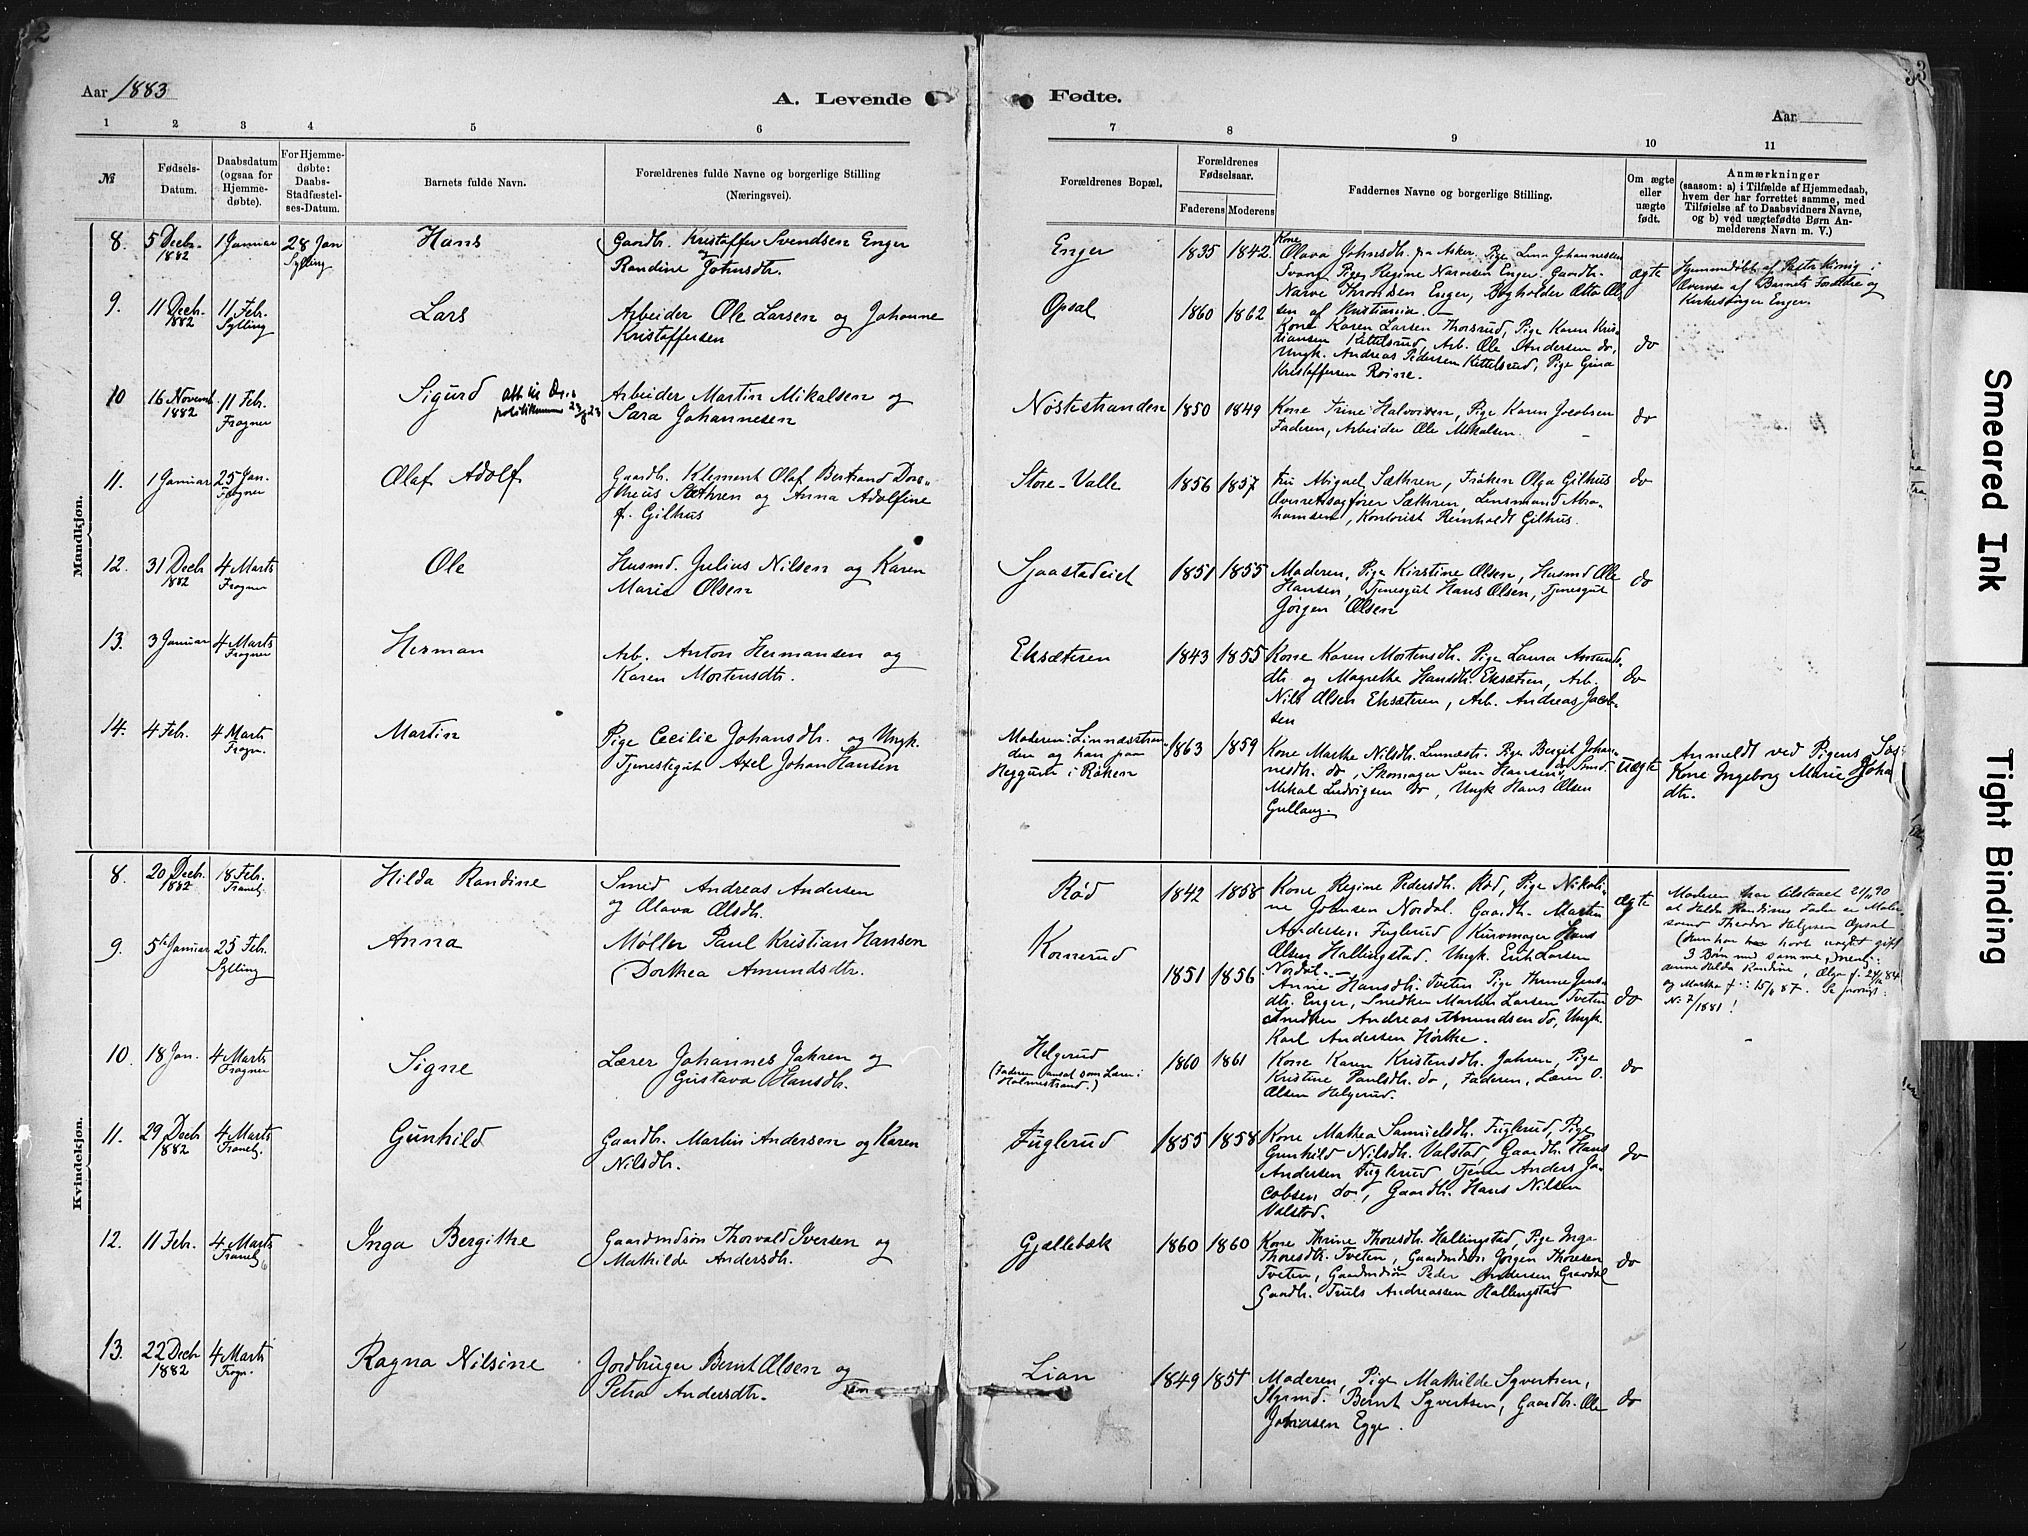 2
33
Aar 1883
A. Levende
Fødte.
Aar
1 2 3 4 5 6 7 8 9 10 11
№
Fødsels-
Datum.
Daabsdatum
(ogsaa for
Hjemme-
døbte).
For Hjemme-
døbte:
Daabs-
Stadfæstel-
ses-Datum.
Barnets fulde Navn.
Forældrenes fulde Navne og borgerlige Stilling
(Næringsvei).
Forældrenes Bopæl.
Forældrenes
Fødselsaar.
Faderens Moderens
Faddernes Navne og borgerlige Stilling.
Om ægte
eller
uægte
født.
Anmærkninger
(saasom: a) i Tilfælde af Hjemmedaab,
hvem der har forrettet samme, med
Tilføielse af to Daabsvidners Navne,
og b) ved uægtefødte Børn An-
melderens Navn m. V.)
Mandkjøn.
8. 5 Decb. 1882
1 Januar
28 Jan
Sylling
Hans
Gaardbr. Kristoffer Svendsen Enger
og
Randine Johnsdtr.
Enger
1835 1842
Kone
Olava Johnsdtr. fra Asker. Pige Lina Johannessen
Svang, Pige Regine Narvesen Enger. Gaardbr.
Narve Thronsen Enger, Bogholder Otto Ol-
sen af Kristiania.
ægte
Hjemmedøbt af Pastor König i
Overvær af Barnets Forældre og
Kirkesanger Enger.
9. 11 Decb. 1882
11 Feb.
Sylling
Lars
Arbeider Ole Larsen og Johanne
Kristoffersen
Opsal
1860 1862
Kone Karen Larsen Thorsrud, Pige Karen Kris-
tiansen Kittelsrud, Arb. Ole Andersen do,
Ungk. Andreas Pedersen Kittelsrud, Pige Gina
Kristoffersen Roine.
do
10 16 Novemb 1882
11 Feb.
Frogner
Sigurd
Arbeider Martin Mikalsen og
Sara Johannesen
Nøstestranden
1850 1849
Kone Trine Halvorsen, Pige Karen Jacobsen
Faderen, Arbeider Ole Mikalsen.
do
11. 1 Januar
25 Jan.
Frogner
Olaf Adolf
Gaardb. Klement Olaf Bertrand Doro-
theus Sæthren og Anna Adolfine
f. Gilhus
Store-Valle
1856 1857
Fru Abigael Sæthren, Frøken Olga Gilhus
Overretssagfører Sæthren, Lensmand Abra-
hamsen, Kontorist Reinholdt Gilhus.
do
12. 31 Decb 1882
4 Marts
Frogner
Ole
Husmd. Julius Nilsen og Karen
Marie Olsen
Sjaastadeiet
1851 1855
Moderen, Pige Kirstine Olsen, Husmd Ole
Hansen, Tjenesgut Hans Olsen, Tjenesgut
Jørgen Olsen
do
13. 3 Januar
4 Marts
Frogner
Herman
Arb. Anton Hermansen og
Karen Mortensdtr.
Eksæteren
1843 1855
Kone Karen Mortensdtr. Pige Laura Amunds-
dtr og Magrethe Hansdtr. Eksæteren, Arb.
Nils Olsen Eksæteren, Arb. Andreas Jacob-
sen
do
14. 4 Feb.
4 Marts
Frogn.
Martin
Pige Cecilie Johansdtr. og Ungk.
Tjenestegut Axel Johan Hansen
Moderen: Linnesstran-
den og han paa
Heggum i Røken
1863 1859
Kone Marthe Nilsdtr. Linnæstr. Pige Bergit Johan-
nesdtr. do, Skomager Sven Hansen do, Smd.
Mikal Ludvigsen do, Ungk Hans Olsen
Gullaug.
uægte
Anmeldt ved Pigens
Kone Ingeborg Marie
dtr.
Kvindekjøn.
8. 20 Decb. 1882
18 Feb.
Traneb.
Hilda Randine
Smed Andreas Andersen
og Olava Olsdtr.
Rød
1842 1858
Kone Regine Pedersdtr. Rød, Pige Nikoli-
ne Johnsen Nordal. Gaardbr. Martin
Andersen Fuglerud, Kurvmager Hans
Olsen Hallingstad. Ungk. Enk Larsen
Nordal.
ægte
Moderen har tilstaaet 21/11 90
at Hilda Randines Fader er Maler-
svend Theodor Helgesen Opsal
(Hun har havt uægte gift
3 Børn med samme, nemlig:
Anne Hilda Randine, Olga f. 84
og Marthe f. 15/11 87.
No 7/1881!
9. 5te Januar
25 Feb.
Sylling
Anna
Møller Paul Kristian Hansen
Dorthea Amundsdtr.
Kornerud
1851 1856
Anne Hansdtr. Tveten Pige Thrine Jens-
dtr. Enger, Snedker Martin Larsen Tveten
Snedker Andreas Amundsen do, Ungk.
Karl Andersen Hørthe.
do
10. 18 Jan.
4 Marts
Frogner
Signe
Lærer Johannes Jahren og
Gustava Hansdtr.
Helgerud
(Faderen ansat som Lærer i
Holmestrand.)
1860 1861
Kone Karen Kristensdtr. Jahren, Pige
Kristine Paulsdtr. do, Faderen, Lærer O.
Olsen Helgerud.
do
11. 29 Decb 1882
4 Marts
Traneb.
Gunhild
Gaardbr. Martin Andersen og Karen
Nilsdtr.
Fuglerud
1855 1858
Kone Mathea Samuelsdtr. Fuglerud, Pige
Gunhild Nilsdtr. Valstad, Gaardbr. Hans
Andersen Fuglerud Tjener Anders Ja-
cobsen do, Gaardbr. Hans Nilsen
Valstad.
do
12. 11 Feb.
4 Marts
Traneb.
Inga Bergithe
Gaardmdsøn Thorvald Iversen og
Mathilde Andersdtr.
Gjellebæk
1860 1860
Kone Thrine Thoresdtr. Hallingstad, Pige Inga
Thoresdtr. Tveten, Gaardmdsøn Jørgen Thoresen
Tveten, Gaardmdsøn Peder Andersen Gravdal
Gaardb. Truls Andreassen Hallingstad
do
13. 22 Decb 1882
4 Marts
Frogn.
Ragna Nilsine
Jordbruger Bernt Olsen og
Petra Andersdtr.
Lian
1849 1851
Moderen, Pige Mathilde Syvertsen,
Styrmd. Bernt Syvertsen, Gaardb. Ole
Johnsen Egge.
do
Smeared Ink
Tight Binding